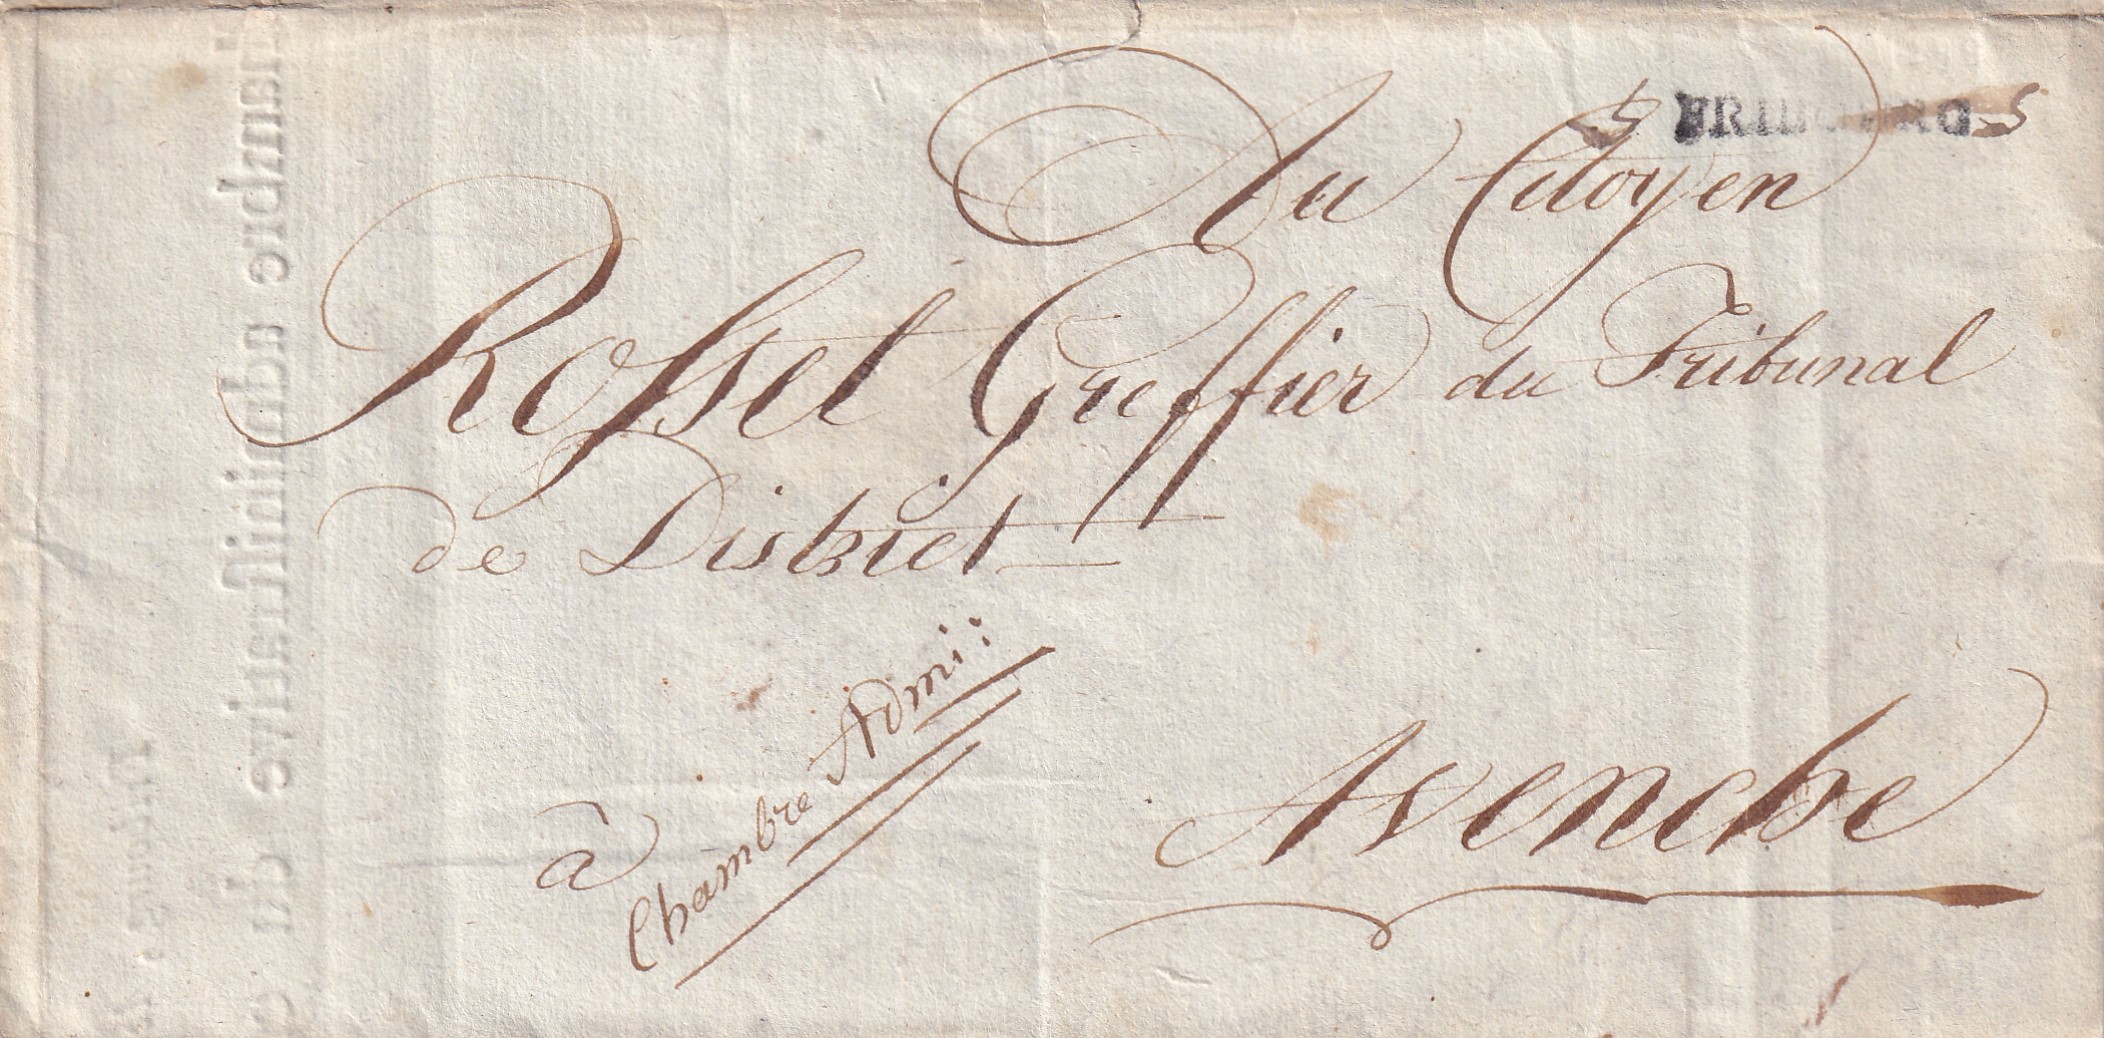 FRIBOURG
Au Citoyen
Rosset Greffier du Tribunal
de District
à
Chambre Admi:
Avenche
Chambre administrative du